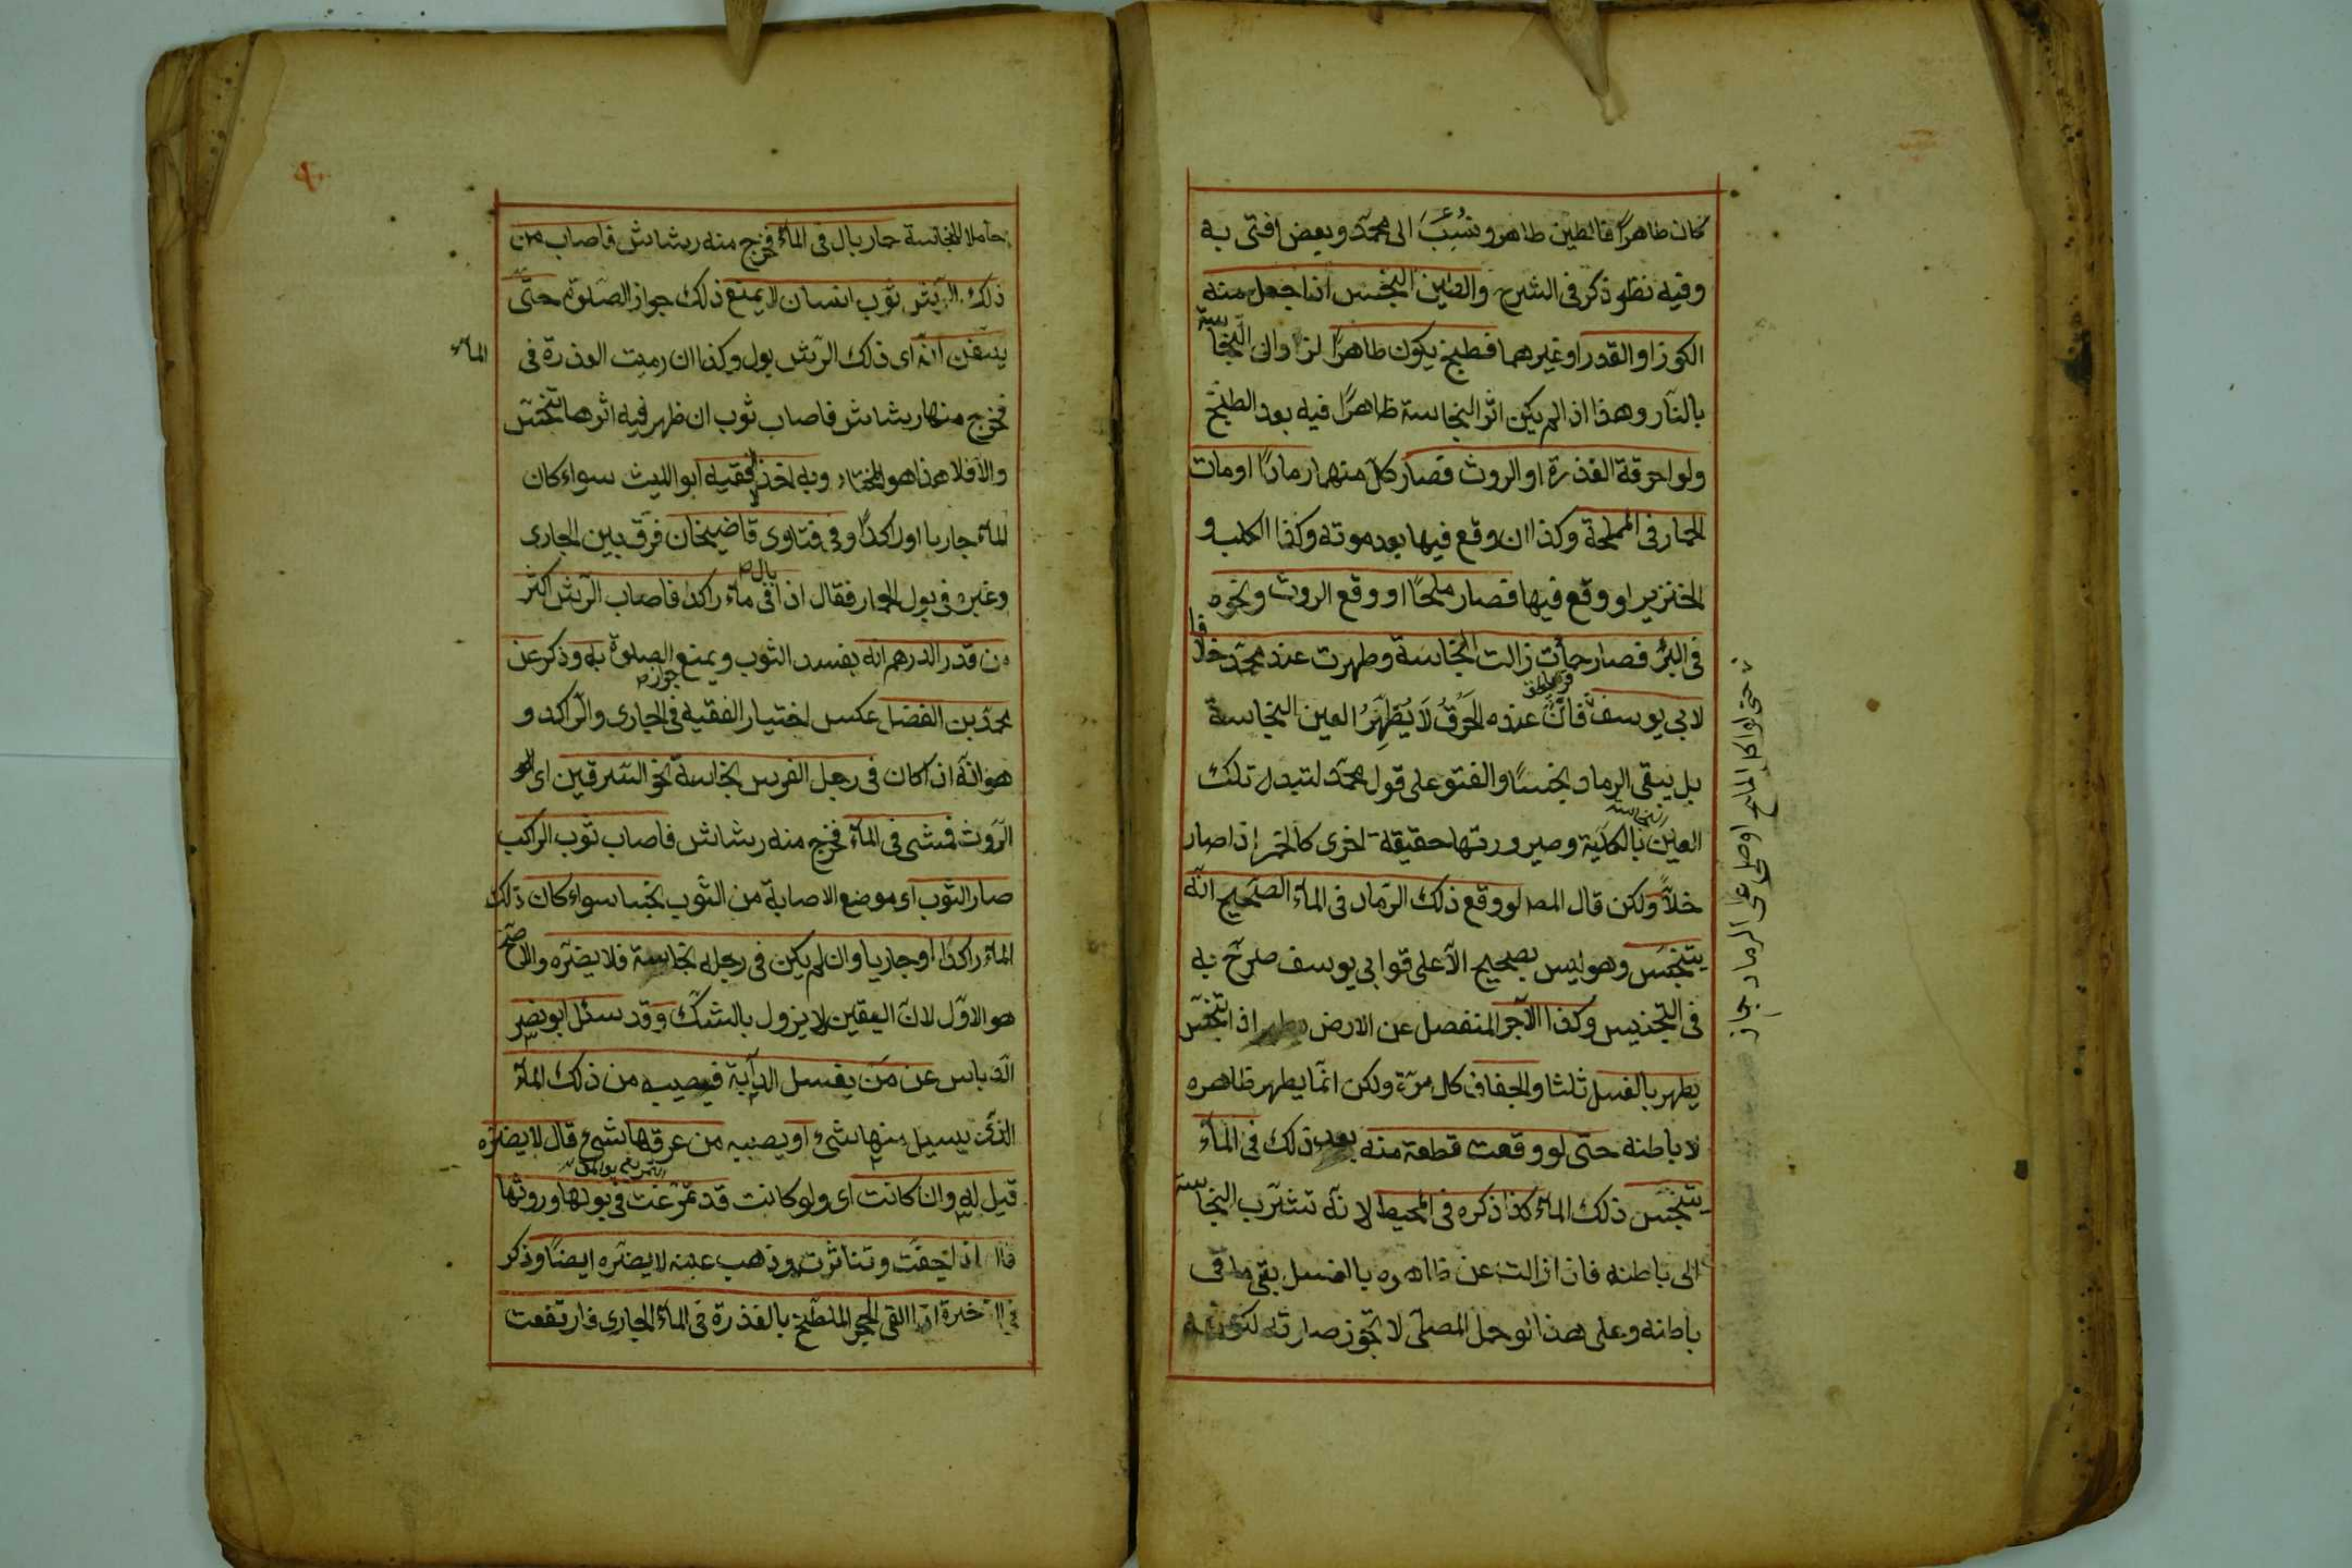 كان طاهرًا فالطين طاهر ونُسِبَ الى محمّد وبعض افتى به
وفيه نظر ذكر فى الشرح والطين النجس اذا جعل منه
الكوز او القدر او غيرهما فطبخ يكون طاهرًا لزوال النجاسة
بالنّار وهذا اذا لم يكن اثر النجاسة ظاهرًا فيه بعد الطبخ
ولو احرقة العذرة او الروث فصار كلّ منهما رمادًا او مات
الحمار فى المملحة وكذا ان وقع فيها بعد موته وكذا الكلب و
الخنزير او وقع فيها فصار ملحًا او وقع الروث ونحوه
فى البئر فصار حمأت زالت النجاسة وطهرت عند محمّد خلافا
لابى يوسف فانّ عنده الحرقُ لَا يُطَهِّرُ العين النجاسة
بل يبقى الرماد نجسًا والفتو على قول محمّد لتبدل تلك
العين بالكليّة وصيرورتها حقيقة اخرى كالخمر اذا صار
خلاًّ ولكن قال المصـ لو وقع ذلك الرّماد فى الماء الصّحيح انّه
يتنجّس وهو ليس بصحيح الّا على قو ابى يوسف صرّح به
فى التجنيس وكذا الآجر المنفصل عن الارض اذا تنجّس
يطهر بالغسل ثلثا والجفاف كل مرّة ولكن انّما يطهر ظاهره
لا باطنه حتى لو وقعت قطعة منه بعد ذلك فى الماء
يتنجّس ذلك الماء كذا ذكره فى المحيط لانّه تشرّب النجاسة
الى باطنه فاذا زالت عن ظاهره بالغسل بقى ما فى
باطنه وعلى هذا لو حمل المصلّى لا تجوز صلوته لكونه
حتى لو اكل الملح او صلى على الرماد جاز
حاملا للنجاسة حمار بال فى الماء فخرج منه رشاش فاصاب من
ذلك الرّش ثوب انسان لا يمنع ذلك جواز الصّلوة حتّى
يتيقن انّه اى ذلك الرّش بول وكذا ان رميت العذرة فى الماء
فخرج منها رشاش فاصاب ثوب ان ظهر فيه اثرها تنجّس
والّا فلا هذا هو المختار وبه اخذ الفقيه ابو الليث سواء كان
الماء جاريا او راكدًا وفى فتاوى قاضيخان فرّق بين الجارى
وغيره فى بول الحمار فقال اذا بال فى ماء راكد فاصاب الرّش اكثر
من قدر الدرهم انه يفسد الثوب ويمنع جواز الصلوة به وذكر عن
محمّد بن الفضل عكس اختيار الفقيه فى الجارى والرّاكد و
هو انّه اذا كان فى رجل الفرس نجاسة نحو السّرقين اى
الرّوث فمشى فى الماء فخرج منه رشاش فاصاب ثوب الراكب
صار الثوب اى موضع الاصابة من الثوب نجسا سواء كان ذلك
الماء راكدًا او جاريا وان لم يكن فى رجله نجاسة فلا يضرّه والاصحّ
هو الاوّل لانّ اليقين لا يزول بالشكّ وقد سئل ابو نصر
الدّباس عن من يغسل الدابّة فيصيبه من ذلك الماء
الذى يسيل منها شئ او يصيبه من عرقها شئ قال لا يضرّه
قيل له وان كانت اى ولو كانت قد تمرّغت فى بولها وروثها
قال اذا جفّت وتناثرت وذهب عينه لا يضرّه ايضًا وذكر
فى الذخيرة اذا القى الحجر الملطّخ بالعذرة فى الماء الجارى فارتفعت